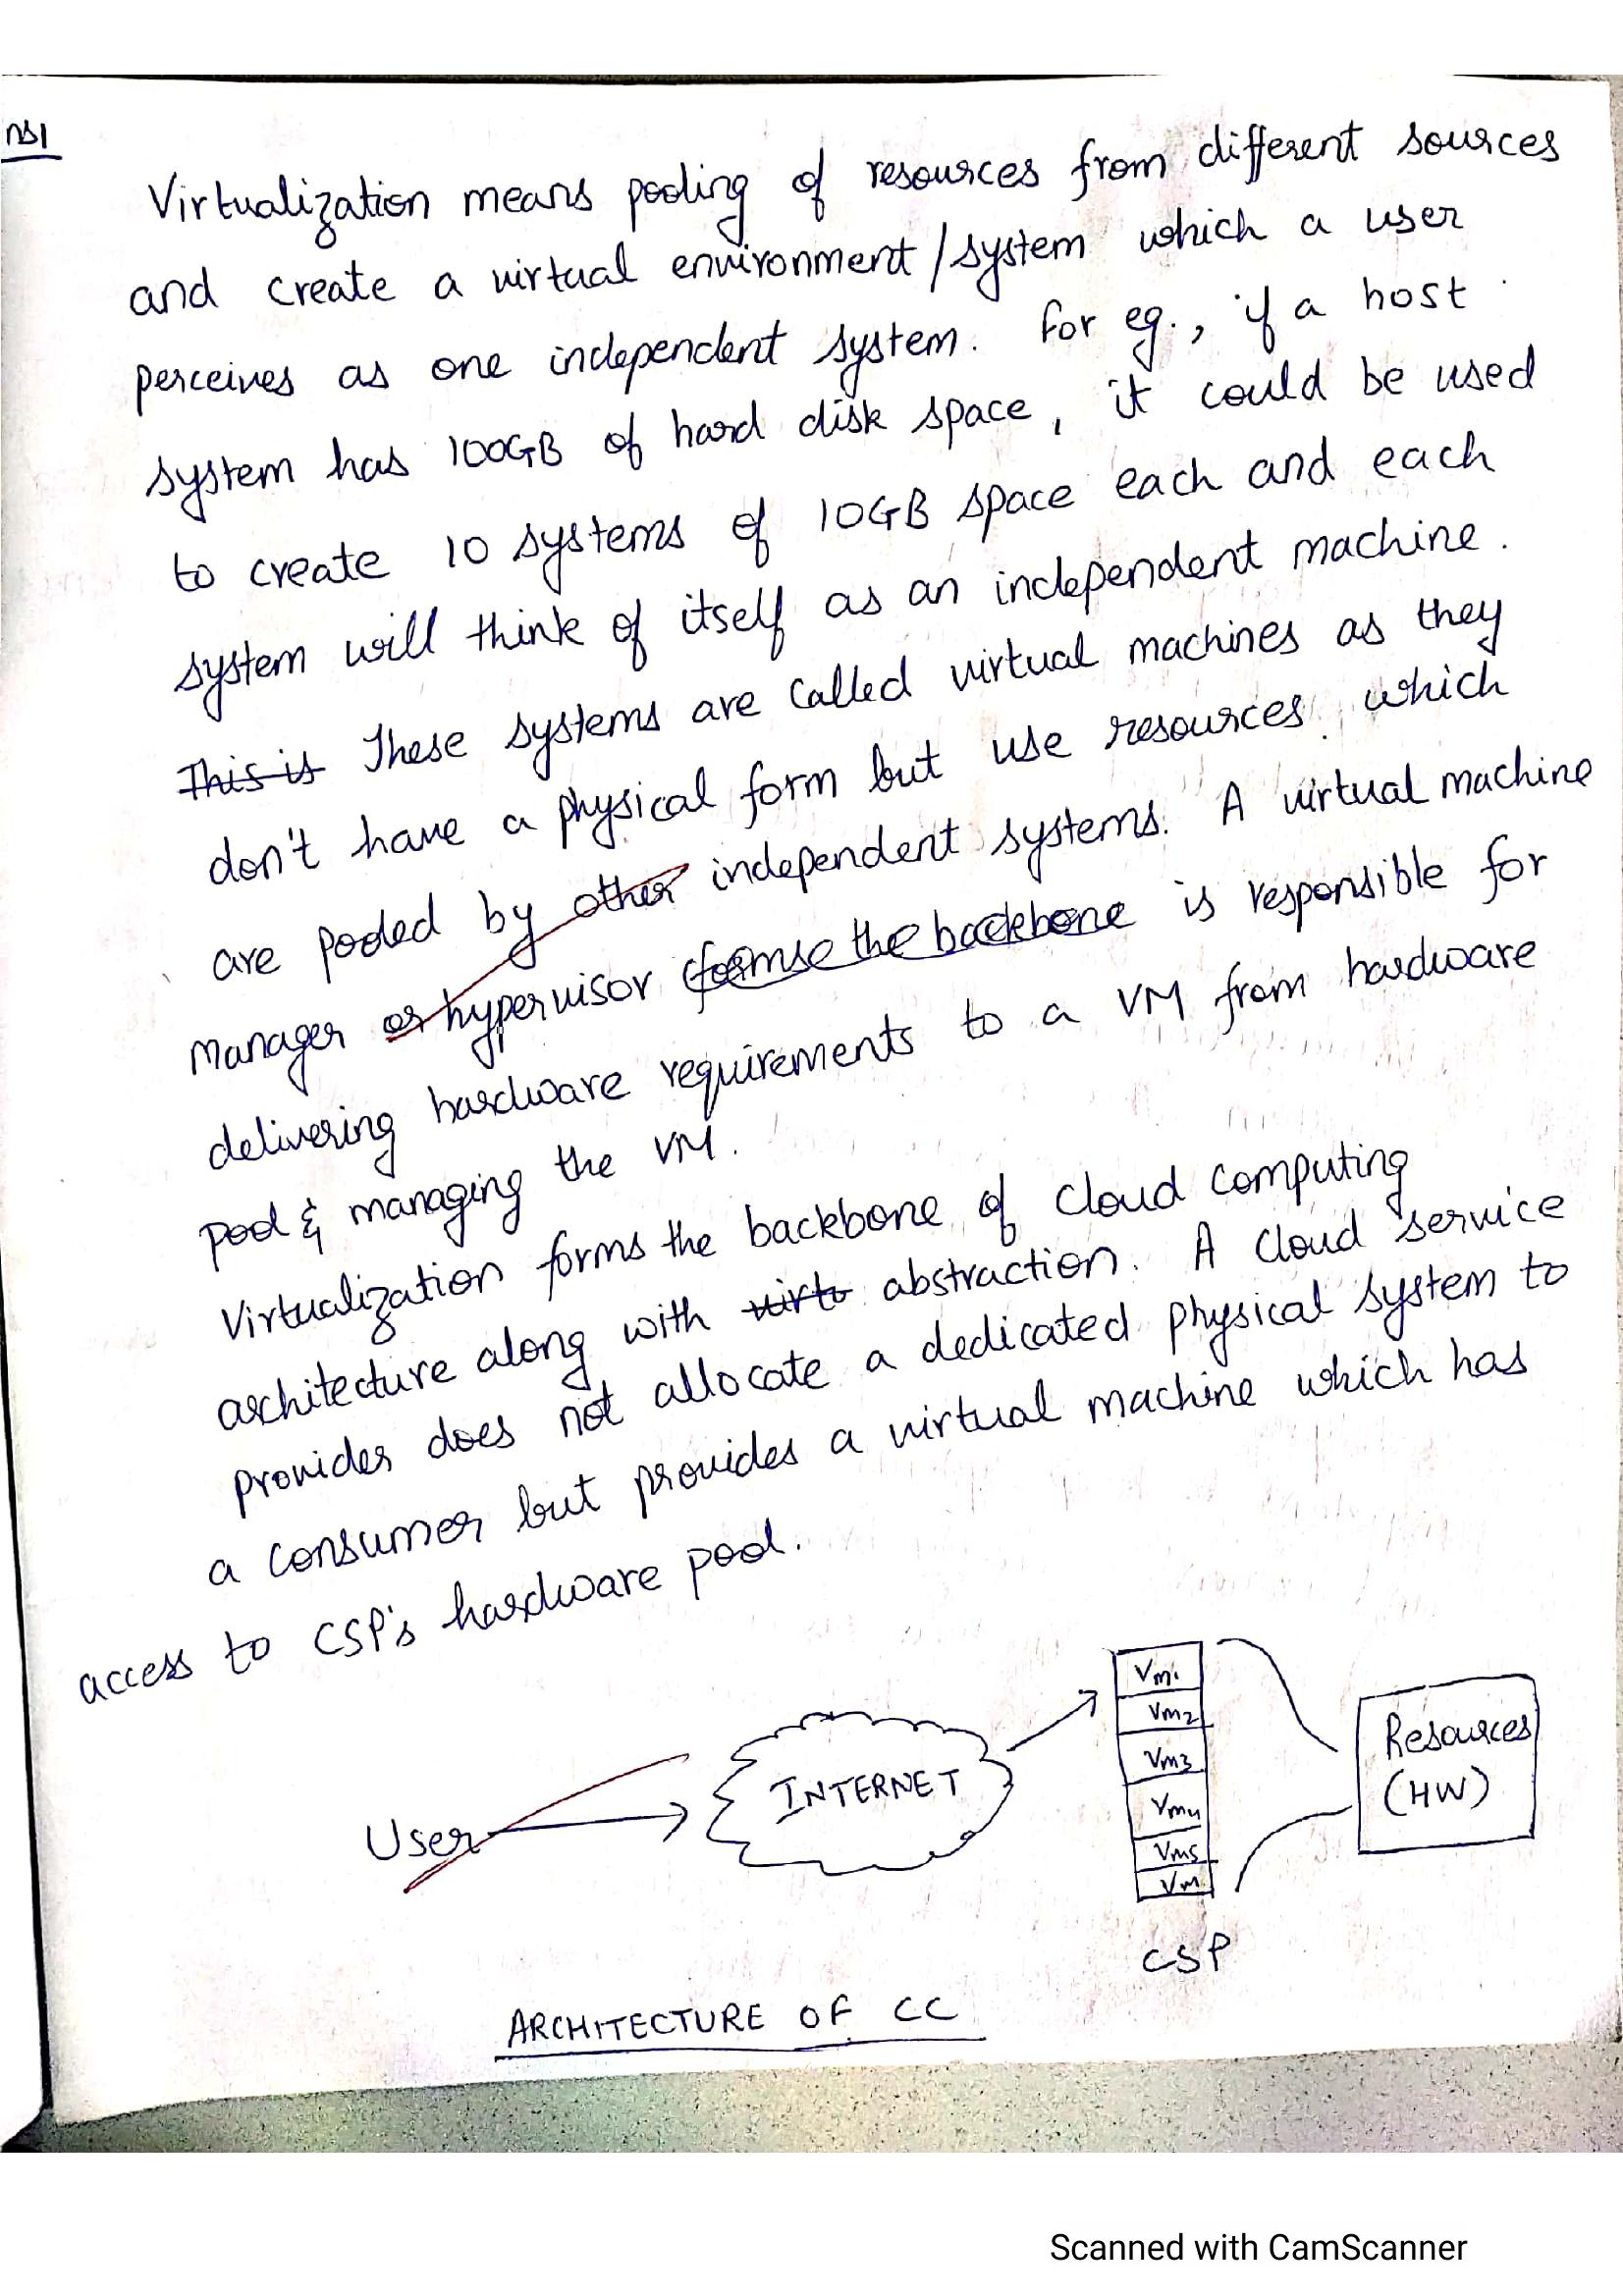 ns1
Virtualization means pooling of resources from different sources
and create a virtual environment/system which a user
perceives as one independent system. for eg., if a host
system has 100GB of hard disk space, it could be used
to create 10 systems of 10GB space each and each
system will think of itself as an independent machine.
This is These systems are called virtual machines as they
don't have a physical form but use resources which
are pooled by other independent systems. A virtual machine
manager or hypervisor the backbone is responsible for
delivering hardware requirements to a VM from hardware
pool & managing the VM.
Virtualization forms the backbone of cloud computing
architecture along with virt abstraction. A cloud service
provider does not allocate a dedicated physical system to
a consumer but provides a virtual machine which has
access to CSP's hardware pool.
User
INTERNET
Vm1
Vm2
Vm3
Vm4
Vm5
Vm
CSP
Resources
(HW)
ARCHITECTURE OF CC
Scanned with CamScanner